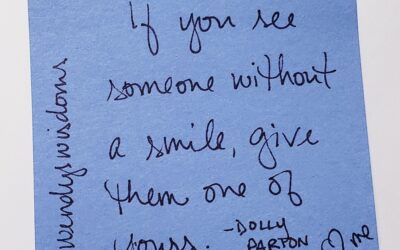 If you see
someone without
a smile, give
them one of
yours. -DOLLY
PARTON
♡ me
wendyswisdoms